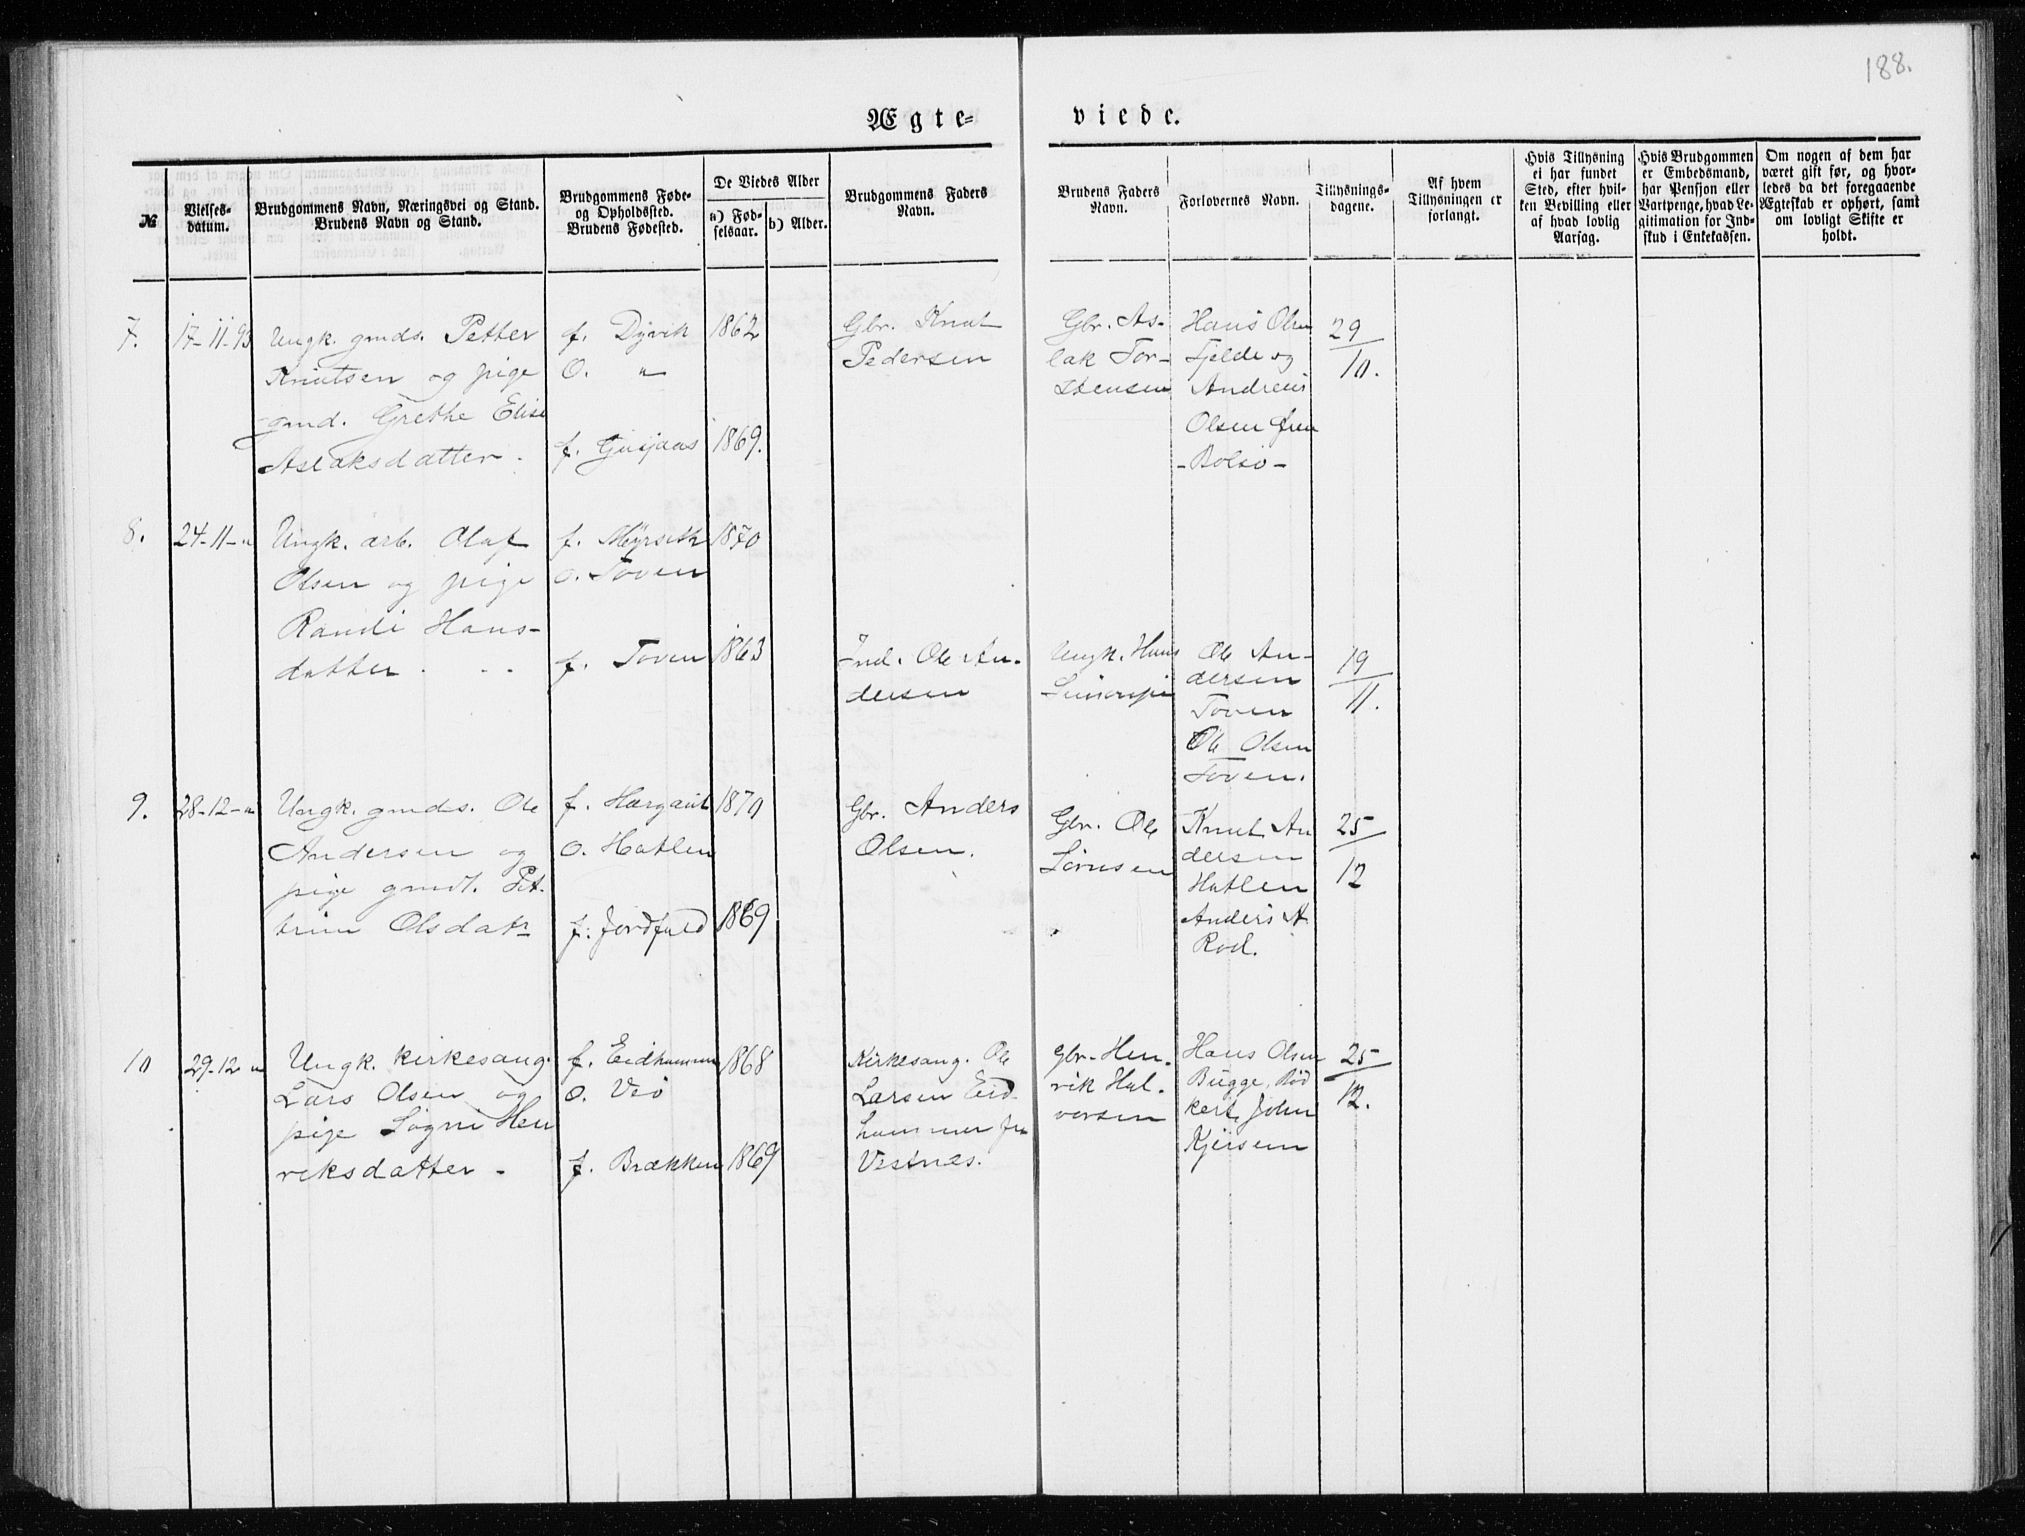 188.
Ægte-
viede.
№
Vielses-
datum.
Brudgommens Navn, Næringsvei og Stand.
Brudens Navn og Stand.
Brudgommens Føde-
og Opholdssted.
Brudens Fødested.
De Viedes Alder
a) Fød-
selsaar.
b) Alder.
Brudgommens Faders
Navn.
Brudens Faders
Navn.
Forlovernes Navn.
Tillysnings-
dagene.
Af hvem
Tillysningen er
forlangt.
Hvis Tillysning
ei har fundet
Sted, efter hvil-
ken Bevilling eller
af hvad lovlig
Aarsag.
Hvis Brudgommen
er Embedsmand,
har Pension eller
Vartpenge, hvad Le-
gitimation for Ind-
skud i Enkekassen.
Om nogen af dem har
været gift før, og hvor-
ledes da det foregaaende
Ægteskab er ophørt, samt
om lovligt Skifte er
holdt.
7.
17-11-93
Ungk. gmds. Petter
Knutsen og pige
gmd. Grethe Elise
Aslaksdatter.
f. Dyvik
O. "
f. Gusjaas
1862
1869.
Gbr. Knut
Pedersen
Gbr. As-
lak Tor-
stensen
Hans Olsen
Fjelde og
Andreas
Olsen fra
- Bolsø -
29
10.
8.
24-11-"
Ungk. arb. Olaf
Olsen og pige
Randi Hans-
datter.
f. Myrseth
o. Toven
f. Toven
1870
1863
Ind. Ole An-
dersen
Ungk. Hans
Ole An-
dersen
Toven
Ole Olsen
Toven.
19
11.
9.
28-12-"
Ungk. gmds. Ole
Andersen og
pige gmdt. Pet-
trine Olsdatr
f. Hargaut
o. Hatlen
f. Jordfald
1870
1869
Gbr. Anders
Olsen.
Gbr. Ole
Lornsen
Knut An
dersen
Hatlen
Anders A.
Rød.
25
12
10
29-12 "
Ungk. kirkesang.
Lars Olsen og
pige Søgni Hen
riksdatter -
f. Eidhammer
O. Veø
f. Brækken
1868
1869
Kirkesang. Ole
Larsen Eid-
hammer fra
Vestnes.
Gbr. Hen-
rik Hal-
vorsen
Hans Olsen
Bugge, Rød
kert. John
Kjersem
25
12.